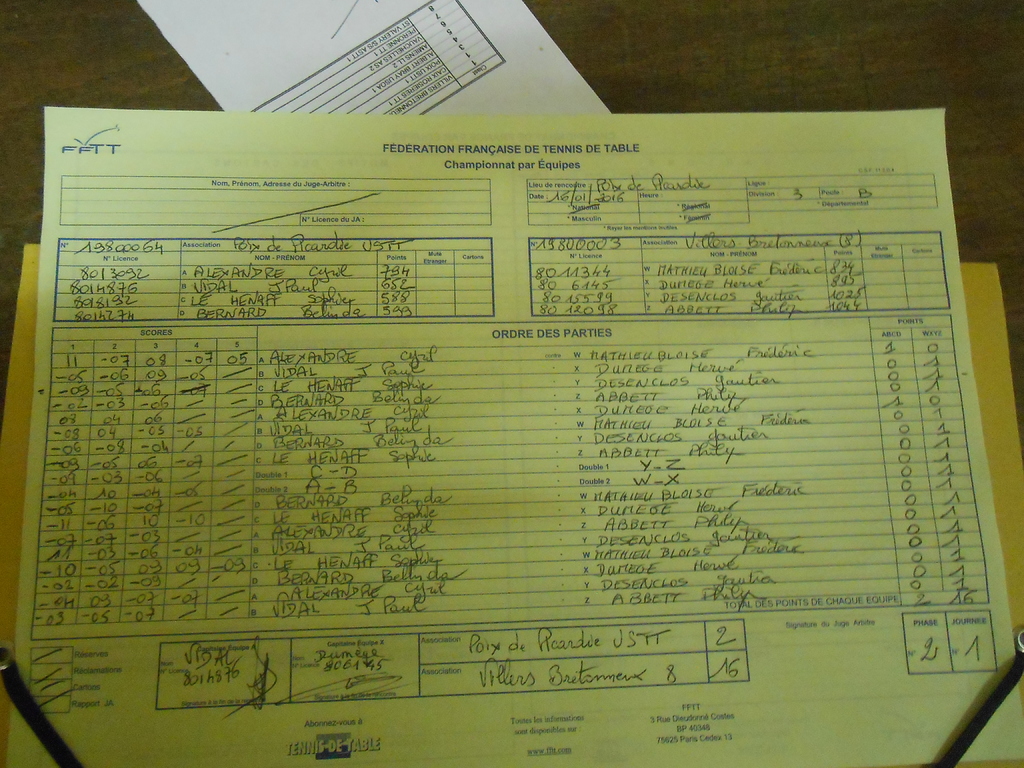 ST VALERY S/S ASTT 1
VAUCHELLES AS 2
AMIENS LL 2
POIX USTT 1
CAIX ROSIERES TT 1
VILLERS BRETONNEUX
FFTT
FÉDÉRATION FRANÇAISE DE TENNIS DE TABLE
Championnat par Équipes
Nom, Prénom, Adresse du Juge-Arbitre :
N° Licence du JA :
Lieu de rencontre : Poix de Picardie
Ligue :
Date : 16/01/2016 Heure :
Division : 3 Poule : B
* National * Régional * Départemental
* Masculin * Féminin
* Rayer les mentions inutiles
N° 19800064 Association Poix de Picardie USTT
N° Licence NOM - PRÉNOM Points Muté Etranger Cartons
8013092 A ALEXANDRE Cyril 794
8014876 B VIDAL J Paul 652
8018192 C LE HENAFF Sophie 588
8014274 D BERNARD Belinda 599
N° 19800003 Association Villers Bretonneux (8)
N° Licence NOM - PRÉNOM Points Muté Etranger Cartons
8011344 W MATHIEU BLOISE Frédéric 834
80 6145 X DUMEGE Hervé 895
8015599 Y DESENCLOS gautier 1025
80 12098 Z ABBETT Philip 1044
SCORES ORDRE DES PARTIES POINTS
1 2 3 4 5 ABCD WXYZ
11 -07 08 -07 05 A ALEXANDRE Cyril contre W MATHIEU BLOISE Frédéric 1 0
-05 -06 09 -05 B VIDAL J Paul X DUMEGE Hervé 0 1
-09 -05 -06 C LE HENAFF Sophie Y DESENCLOS gautier 0 1
-02 -03 -06 D BERNARD Belinda Z ABBETT Philip 0 1
08 04 06 A ALEXANDRE Cyril X DUMEGE Hervé 1 0
-08 04 -05 -05 B VIDAL J Paul W MATHIEU BLOISE Frédéric 0 1
-06 -08 -04 D BERNARD Belinda Y DESENCLOS gautier 0 1
-09 -05 06 -07 C LE HENAFF Sophie Z ABBETT Philip 0 1
-09 -03 -06 Double 1 C-D Double 1 Y-Z 0 1
-04 10 -04 -05 Double 2 A-B Double 2 W-X 0 1
-05 -10 -07 D BERNARD Belinda W MATHIEU BLOISE Frédéric 0 1
-11 -06 10 -10 C LE HENAFF Sophie X DUMEGE Hervé 0 1
-07 -07 -03 A ALEXANDRE Cyril Z ABBETT Philip 0 1
11 -03 -06 -04 B VIDAL J Paul Y DESENCLOS gautier 0 1
-10 -05 09 09 -09 C LE HENAFF Sophie W MATHIEU BLOISE Frédéric 0 1
-02 -02 -09 D BERNARD Belinda X DUMEGE Hervé 0 1
-04 09 -07 -07 A ALEXANDRE Cyril Y DESENCLOS gautier 0 1
-03 -05 -07 B VIDAL J Paul Z ABBETT Philip 0 1
TOTAL DES POINTS DE CHAQUE ÉQUIPE 2 16
Réserves
Réclamations
Cartons
Rapport JA
Capitaine Équipe A
Nom VIDAL
N° Licence 8014876
Signature à la fin de la rencontre
Capitaine Équipe X
Nom Dumège
N° Licence 806145
Signature à la fin de la rencontre
Association Poix de Picardie USTT 2
Association Villers Bretonneux 8 16
Signature du Juge Arbitre
PHASE JOURNÉE
N° 2 N° 1
Abonnez-vous à
TENNIS-DE-TABLE
Toutes les informations
sont disponibles sur :
www.fftt.com
FFTT
3 Rue Dieudonné Costes
BP 40348
75625 Paris Cedex 13